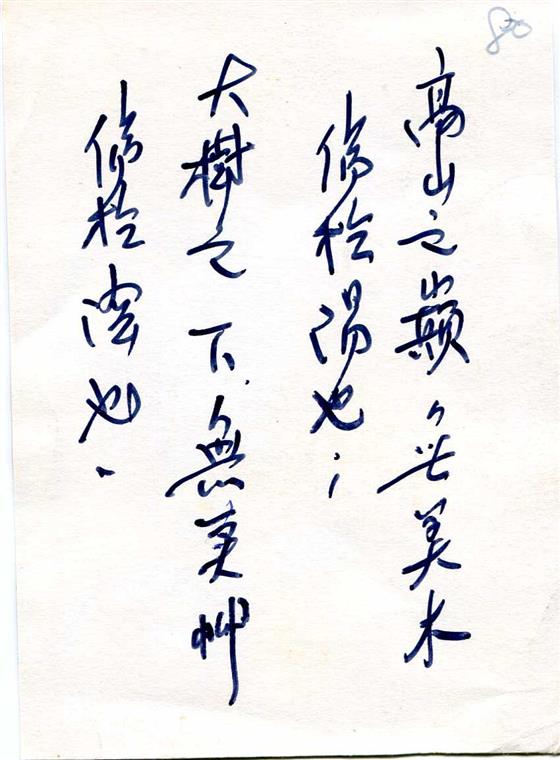 80
高山之巔無美木
傷於陽也；
大樹之下無美艸
傷於陰也。